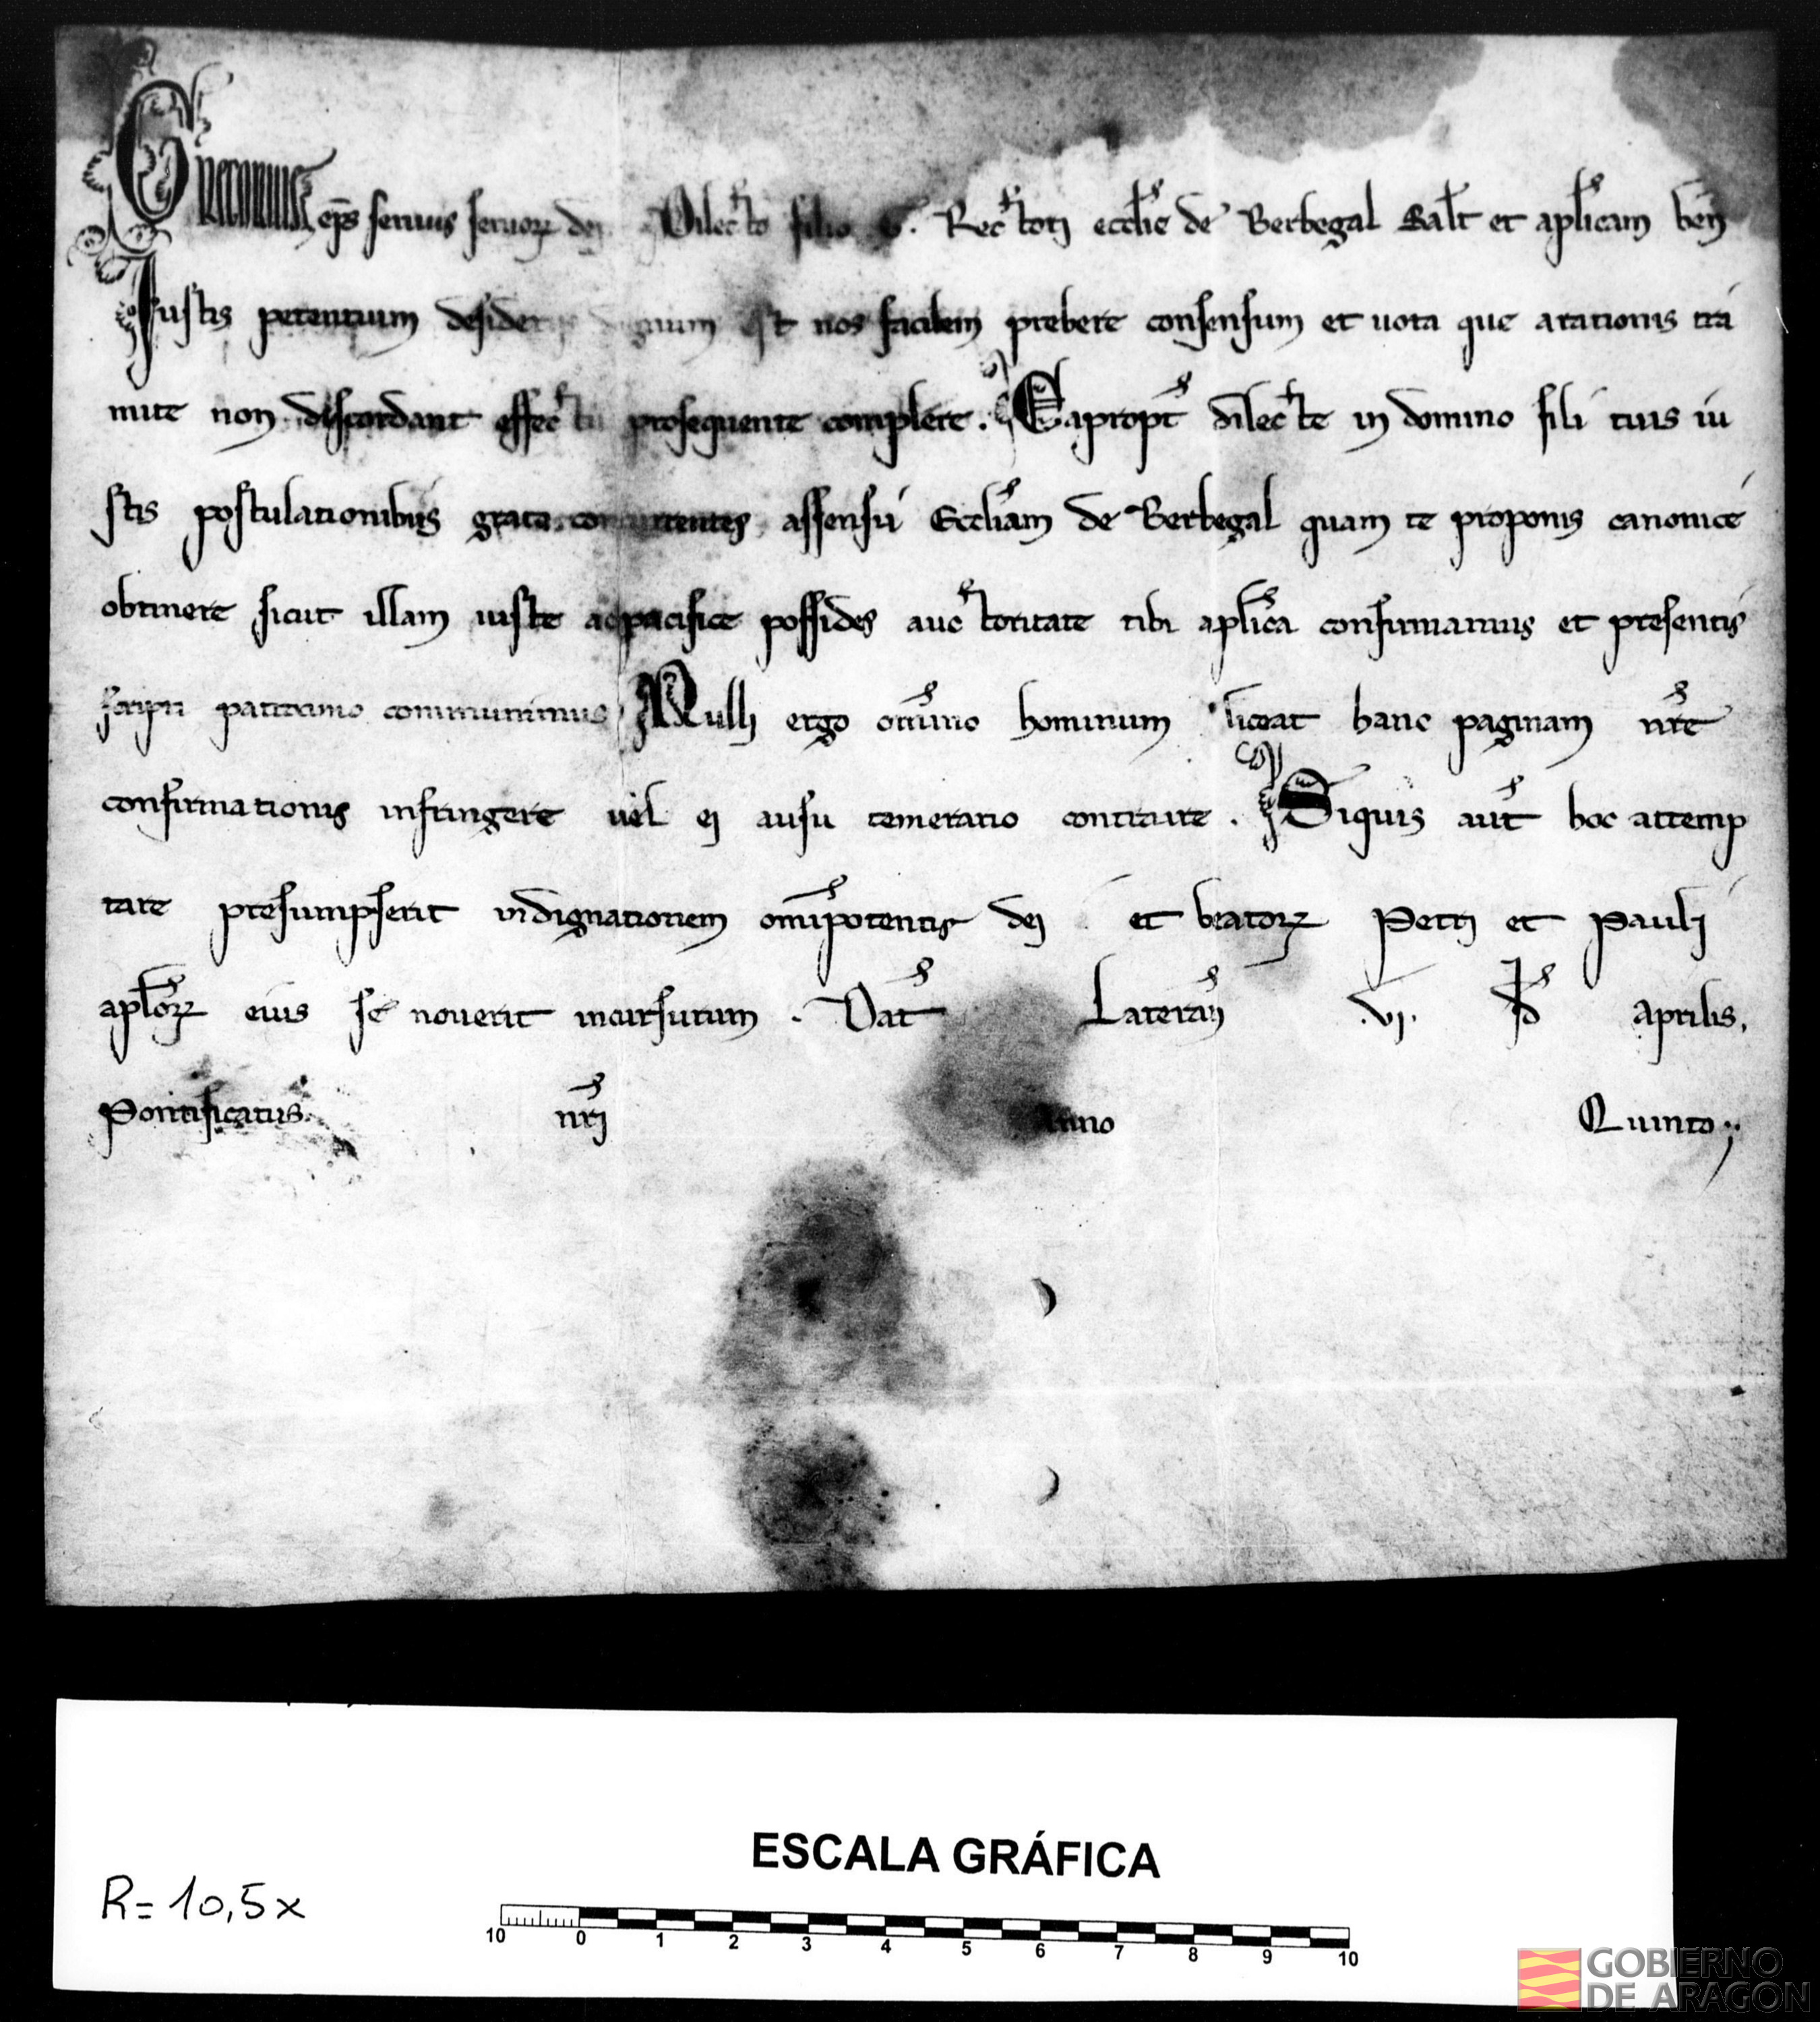 Gregorius ep̄s seruus seruoꝝ dei. Dilecto filio G. Rectori eccl̄ie de Berbegal Sal̄t et ap̄licam ben̄
Iustis petentium desideriis dignum est nos facilem prebere consensum et uota que a rationis tra
mite non discordant effectu prosequente complere. Eapropt̄ dilecte in domino fili tuis iu
stis postulationibus grato concurrentes assensu Eccl̄iam de Berbegal quam te proponis canonice
obtinere sicut illam iuste ac pacifice possides auctoritate tibi ap̄lica confirmamus et presentis
scripti patrocinio communimus. Nulli ergo om̄ino hominum liceat hanc paginam nr̄e
confirmationis infringere uel ei ausu temerario contraire. Siquis aut̄ hoc attemp
tare presumpserit indignationem om̄ipotentis dei et beatoꝝ Petri et Pauli
ap̄loꝝ eius se nouerit incursurum. Dat̄ Lateran̄ .vj. kl̄ Aprilis,
Pontificatus nr̄i Anno Quinto.
ESCALA GRÁFICA
R= 10,5x
10 0 1 2 3 4 5 6 7 8 9 10
GOBIERNO
DE ARAGON